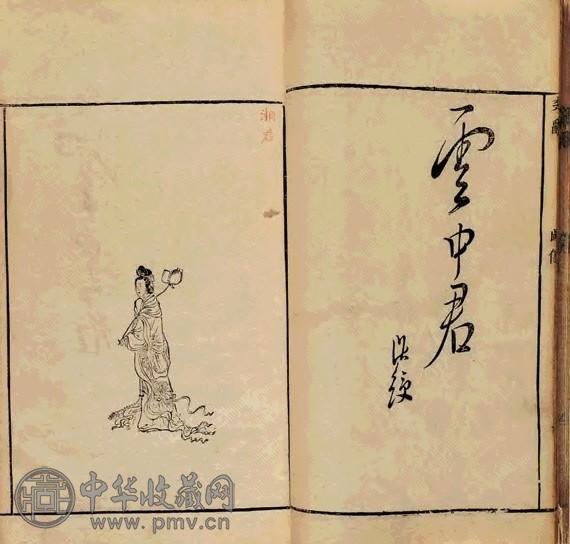 雲中君
洪綬
湘君
中华收藏网
www.pmv.cn